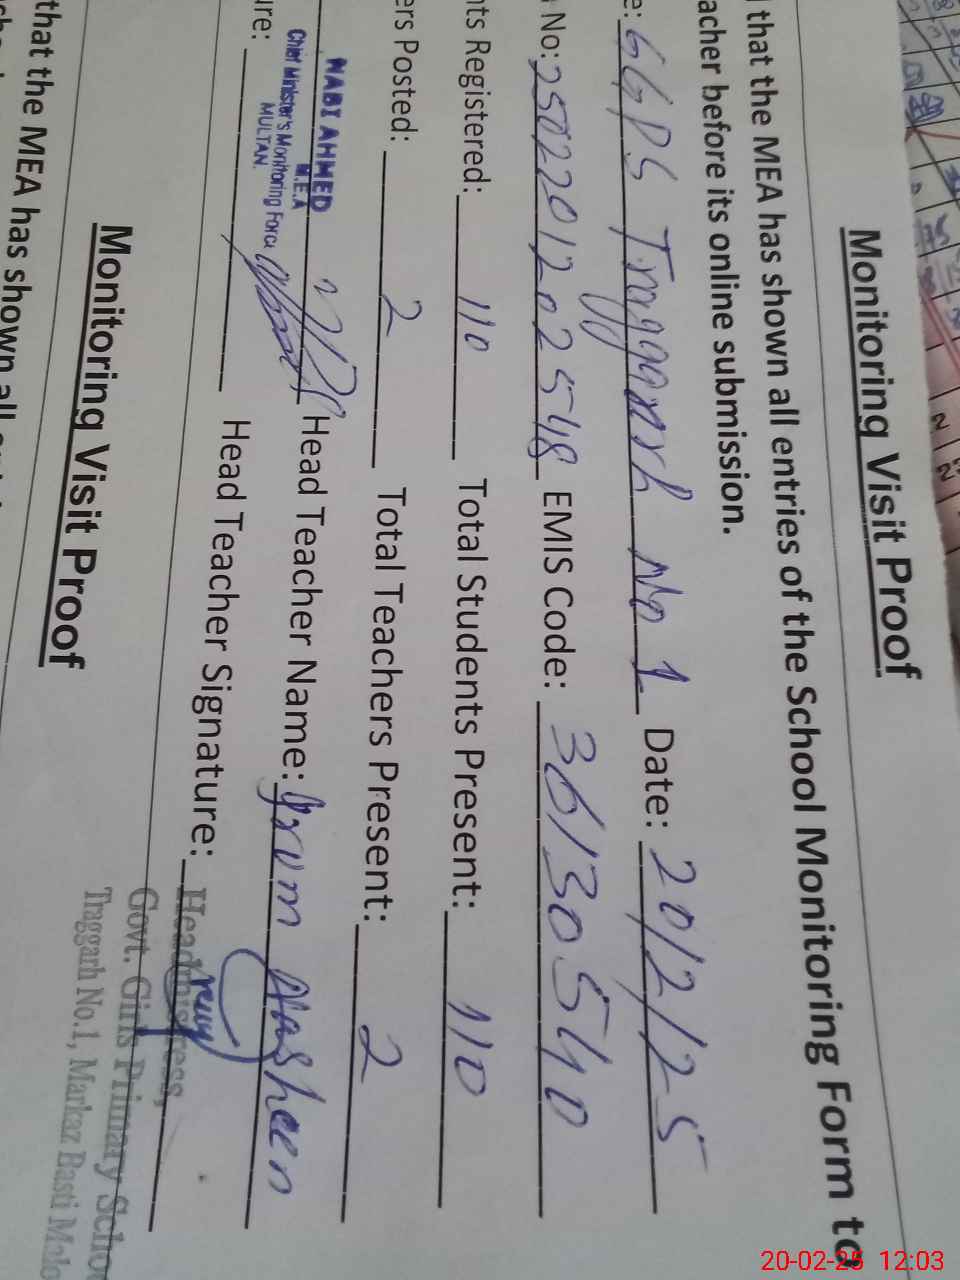 Monitoring Visit Proof
that the MEA has shown all entries of the School Monitoring Form to
acher before its online submission.
e: GGPS Traggarh No 1 Date: 20/2/25
No: 25022012n2548 EMIS Code: 36130540
nts Registered: 110 Total Students Present: 110
ers Posted: 2 Total Teachers Present: 2
NABI AHMED Head Teacher Name: Irum Nasheen
M.E.A
ure: Chief Minister's Monitoring Force Head Teacher Signature:
MULTAN.
Headmistress,
Govt. Girls Primary Schoo
Traggarh No.1, Markaz Basti Malo
Monitoring Visit Proof
that the MEA has shown all
20-02-25 12:03